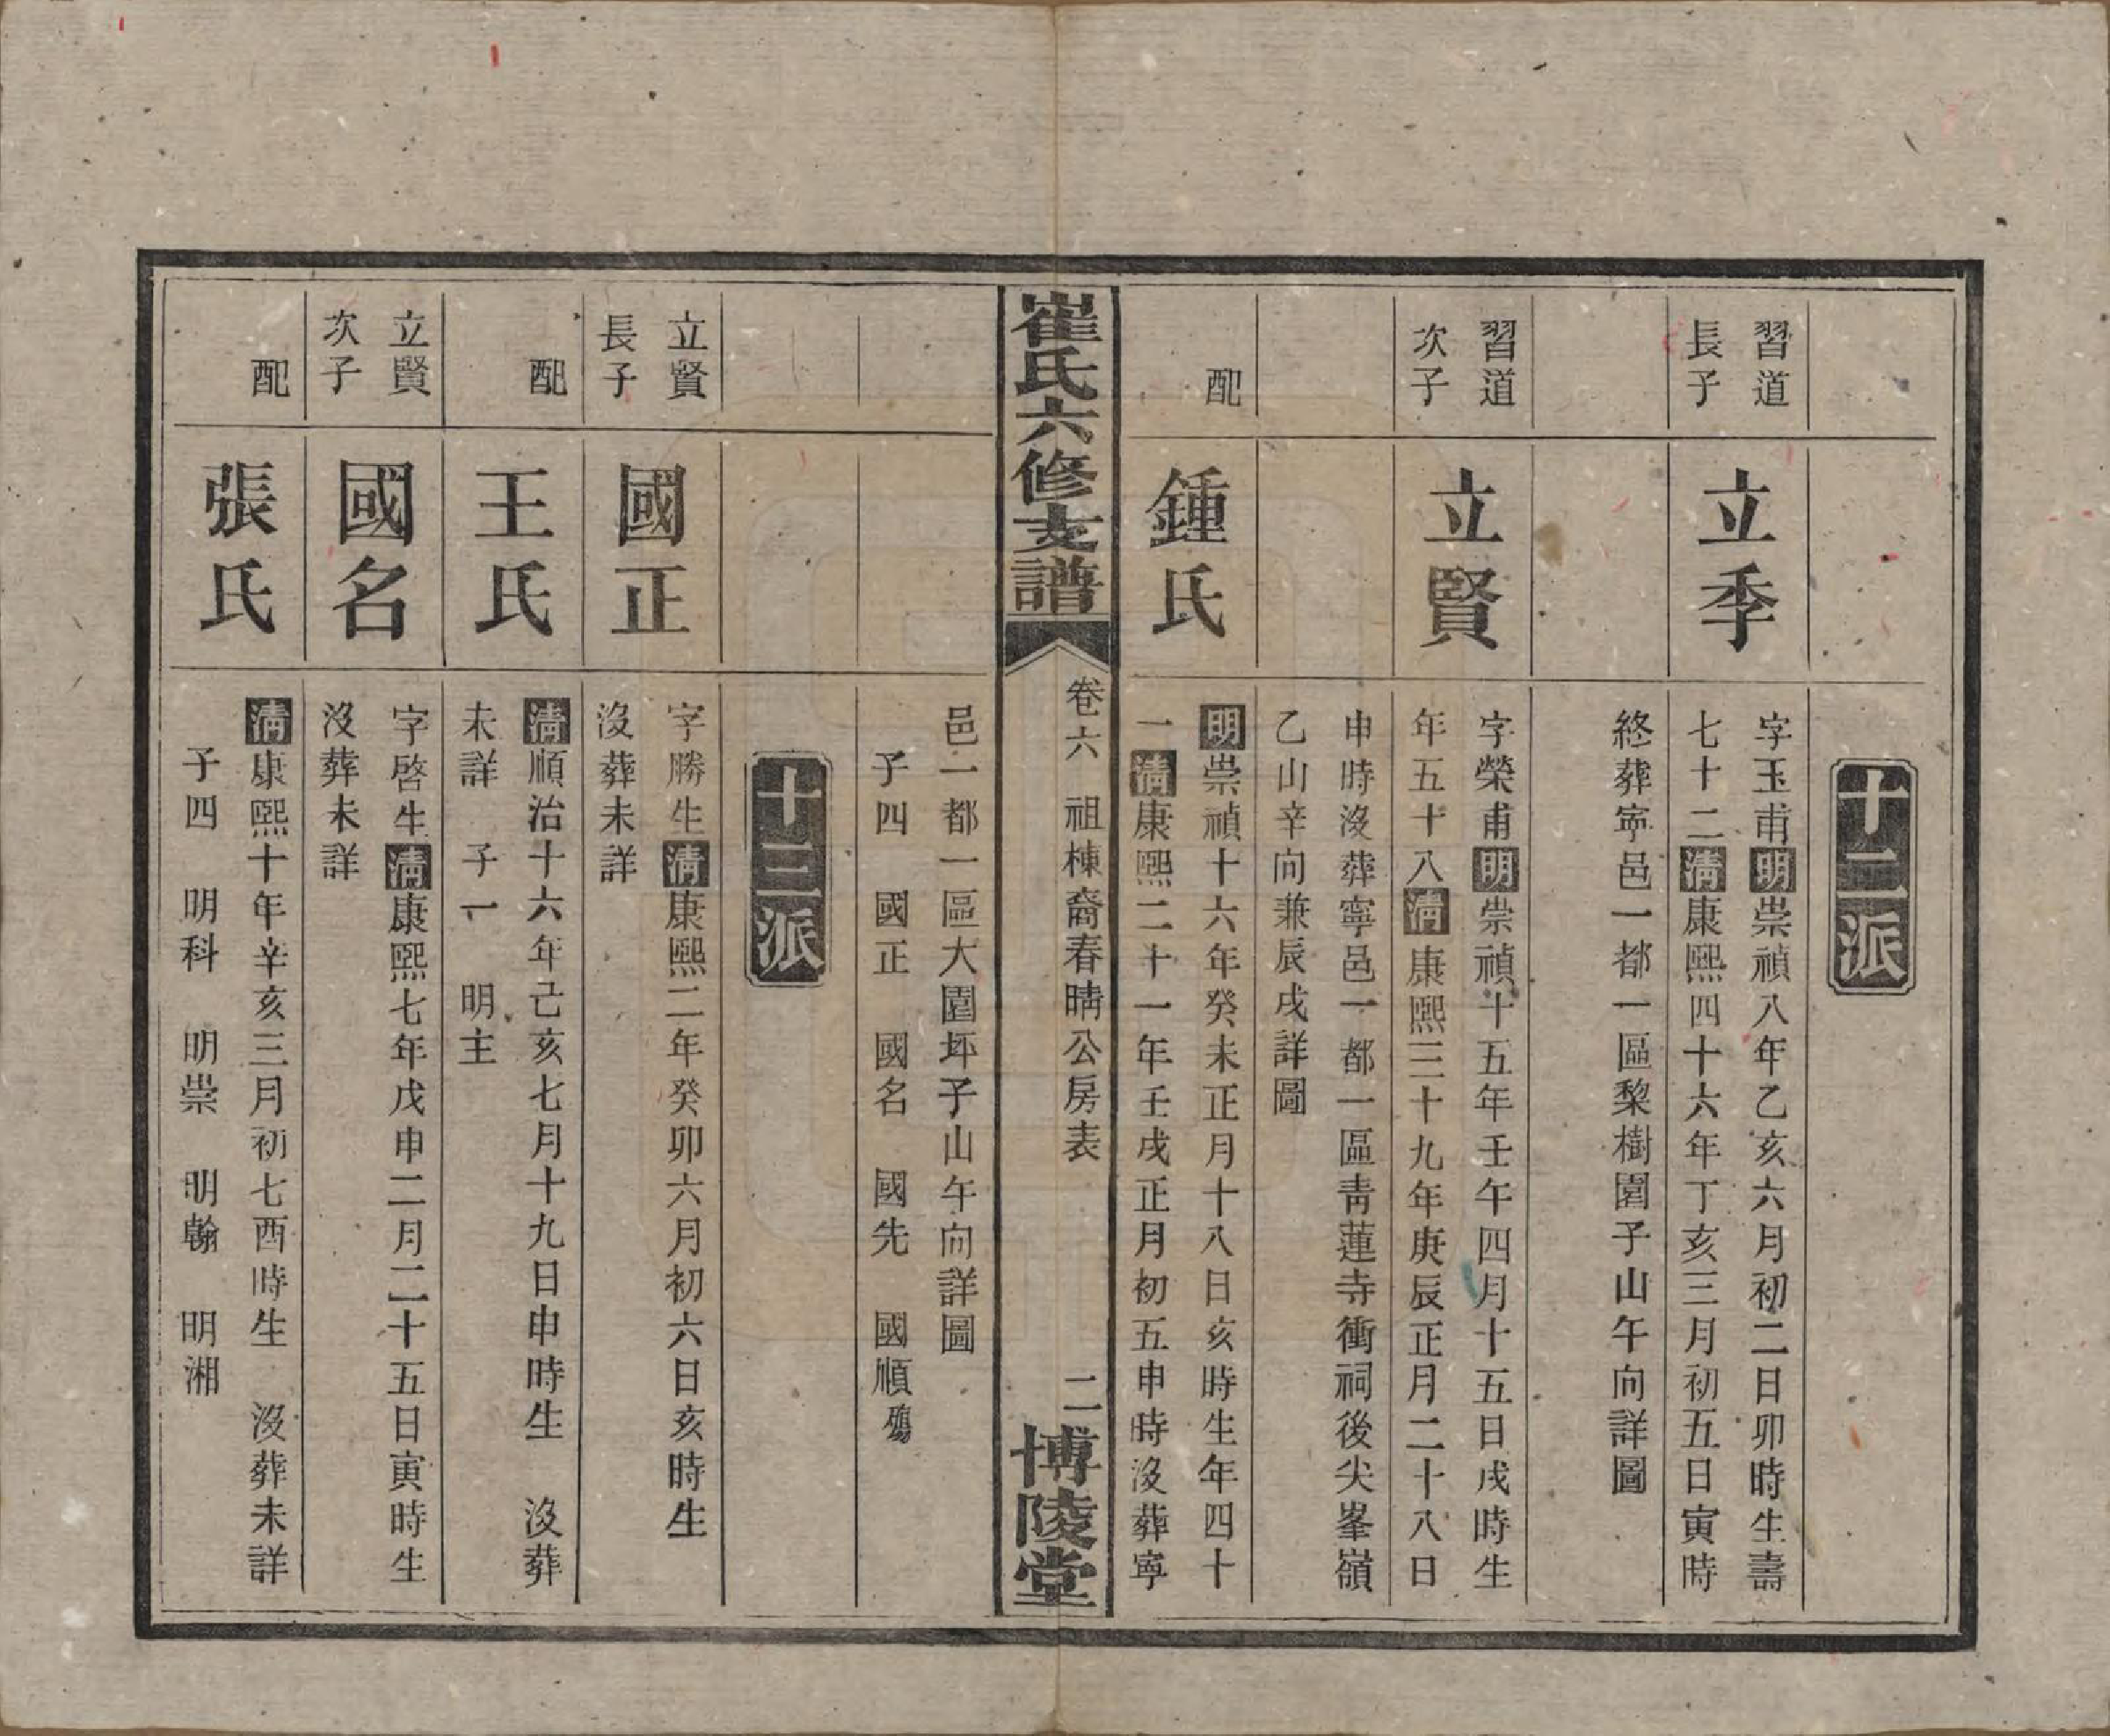 十二派
習道
長子
立季
字玉甫明崇禎八年乙亥六月初二日卯時生壽
七十二清康熙四十六年丁亥三月初五日寅時
終葬寧邑一都一區棃樹園子山午向詳圖
習道
次子
立賢
字榮甫明崇禎十五年壬午四月十五日戌時生
年五十八清康熙三十九年庚辰正月二十八日
申時沒葬寧邑一都一區青蓮寺衝祠後尖峯嶺
乙山辛向兼辰戌詳圖
配
鍾氏
明崇禎十六年癸未正月十八日亥時生年四十
一清康熙二十一年壬戌正月初五申時沒葬寧
崔氏六修支譜
卷六 祖棟裔春晴公房表
二
博陵堂
邑一都一區大園坪子山午向詳圖
子四 國正 國名 國先 國順殤
十三派
立賢
長子
國正
字勝生清康熙二年癸卯六月初六日亥時生
沒葬未詳
配
王氏
清順治十六年己亥七月十九日申時生 沒葬
未詳 子一 明主
立賢
次子
國名
字啓生清康熙七年戊申二月二十五日寅時生
沒葬未詳
配
張氏
清康熙十年辛亥三月初七酉時生 沒葬未詳
子四 明科 明崇 明翰 明湘